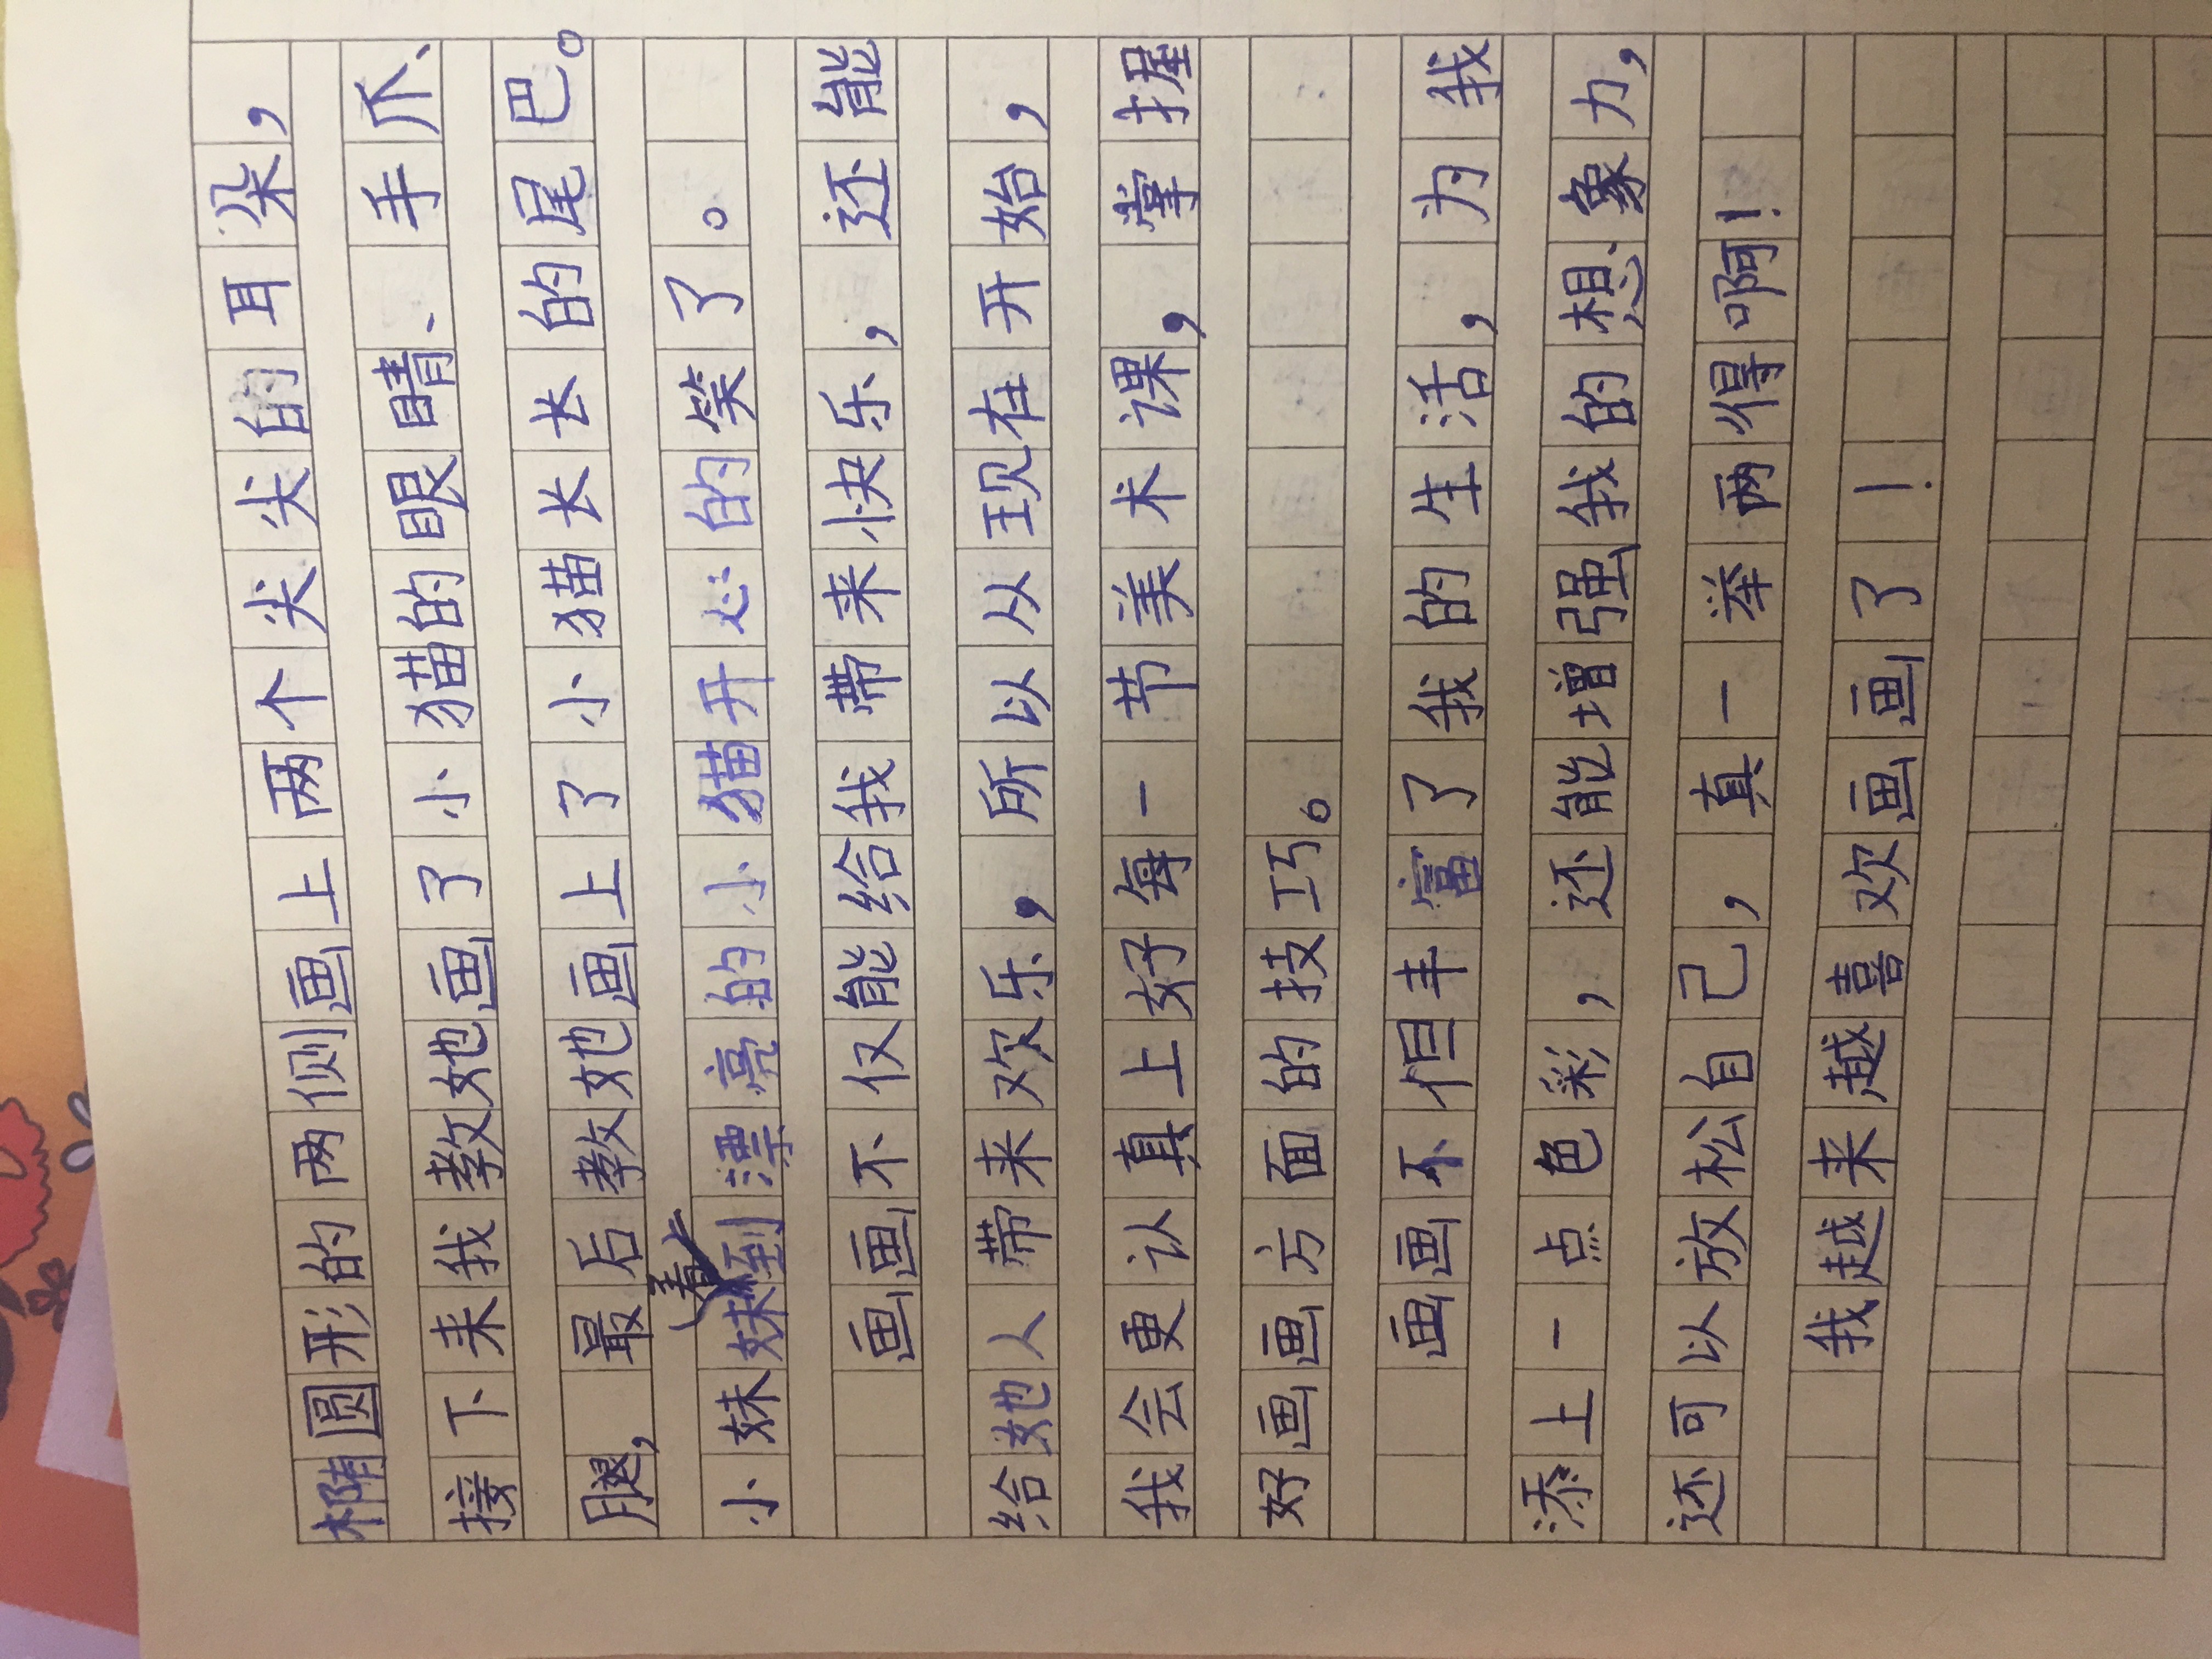 椭圆形的两侧画上两个尖尖的耳朵，
接下来我教她画了小猫的眼睛、手爪、
腿，最后教她画上了小猫长长的尾巴。
小妹妹看到漂亮的小猫开心的笑了。
画画不仅能给我带来快乐，还能
给她人带来欢乐，所以从现在开始，
我会更认真上好每一节美术课，掌握
好画画方面的技巧。
画画不但丰富了我的生活，为我
添上一点色彩，还能增强我的想象力，
还可以放松自己，真一举两得啊！
我越来越喜欢画画了！